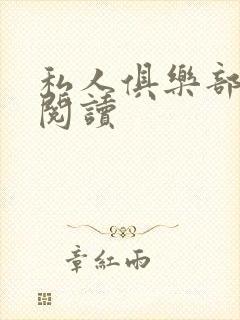 私人俱樂部
閱讀
章紅雨